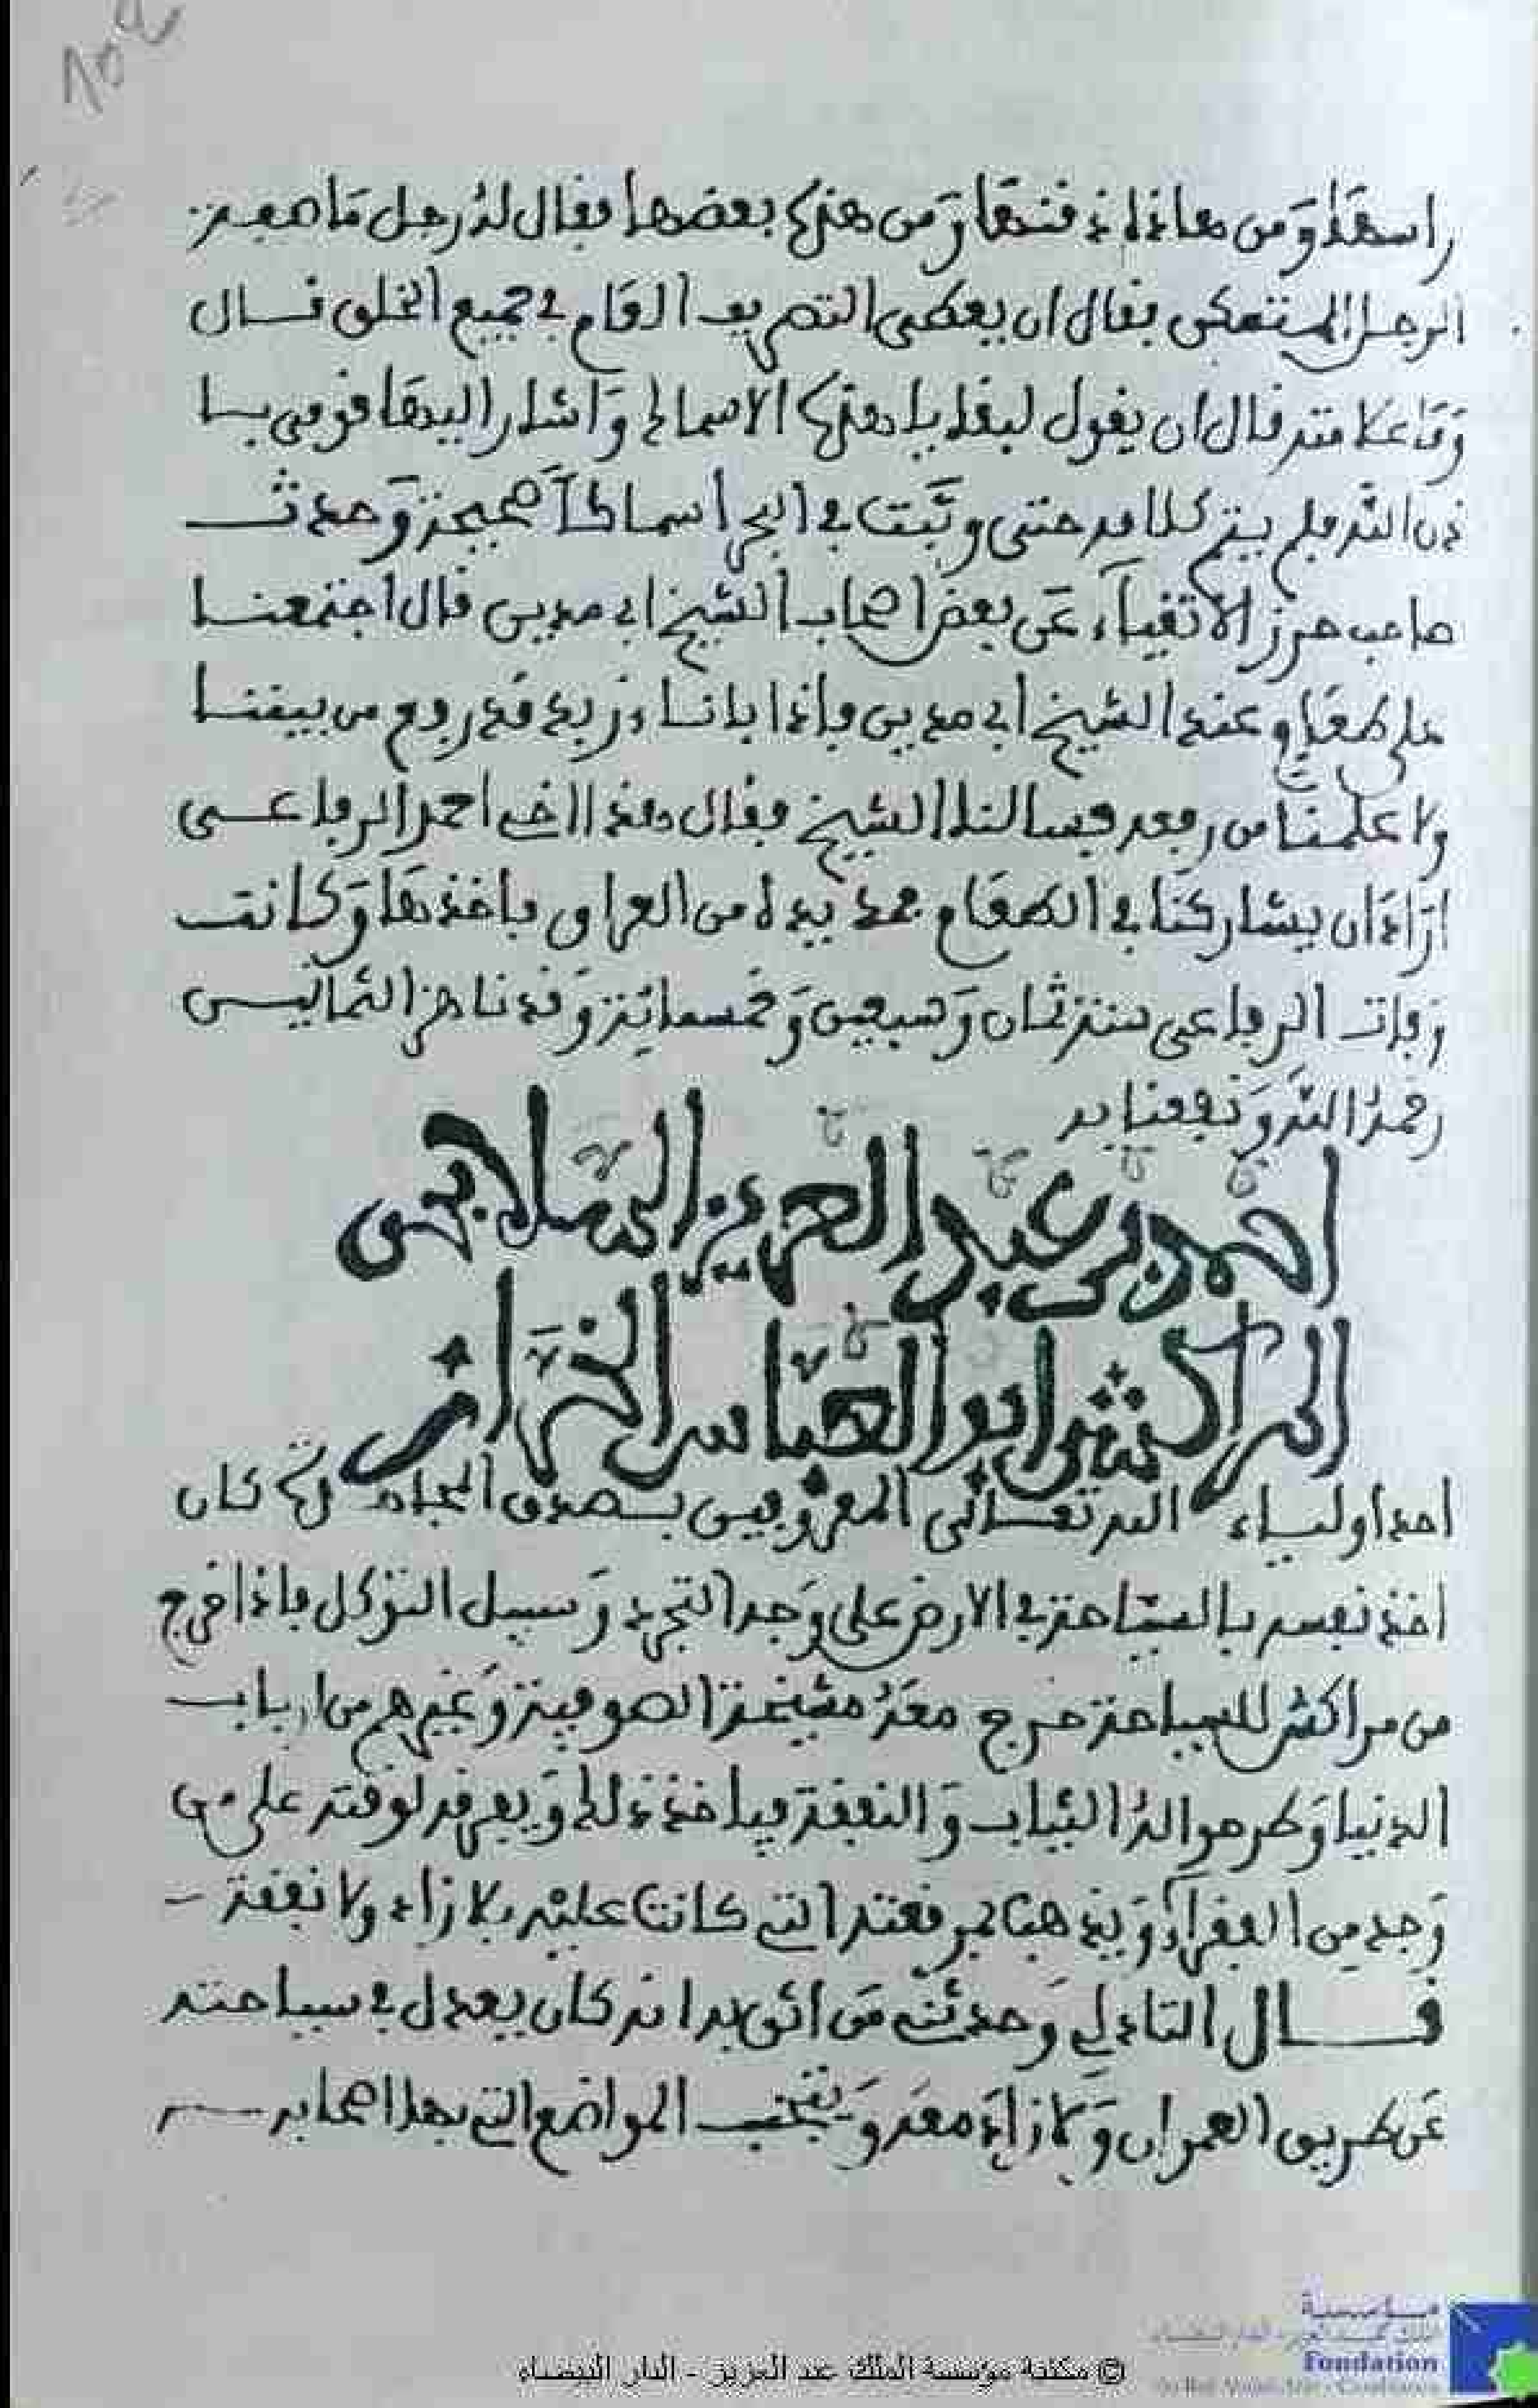 راسها ومن هاذا ذنبها ومن هذه بعضها فقال له رجل ما صفة
الرجل المتمكن فقال ان يعطى التصريف العام في جميع الخلق قال
وما علامته قال ان يقول لبقايا هذه الاسماك واشار اليها قومى با
ذن الله فلم يتم كلامه حتى وثبت في البحر اسماكا صحيحة وحدث
صاحب حرز الاتقياء عن بعض اصحاب الشيخ ابي مدين قال اجتمعنا
على طعام عند الشيخ ابي مدين فاذا باناء زبد قد رفع من بيننا
ولا علمنا من رفعه فسالنا الشيخ فقال هذا اخي احمد الرفاعي
اراد ان يشاركنا في الطعام فمد يده من العراق فاخذها وكانت
وفات الرفاعي سنة ثمان وسبعين وخمسمائة وقد ناهز الثمانين
رحمه الله ونفعنا به
احمد بن عبد العزيز
المراكشي ابو العباس الخراز
احد اولياء الله تعالى المعروفين بصدق المجاهدة كان
اخذ نفسه بالسياحة في الارض على وجه التجريد وسبيل التوكل فاذا خرج
من مراكش للسياحة خرج معه مشيخة الصوفية وغيرهم من ارباب
الدنيا وطرحوا له الثياب والنفقة فياخذ ذلك ويفرقه لوقته على من
وجد من الفقراء ويذهب بمرقعته التي كانت عليه بلا زاد ولا نفقة
قال التادلي وحدثني من اثق به انه كان يعدل في سياحته
عن طريق العمران ولا زاد معه ويتجنب المواضع التي بها اصحابه
© مكتبة مؤسسة الملك عبد العزيز - الدار البيضاء
مؤسسة
Fondation